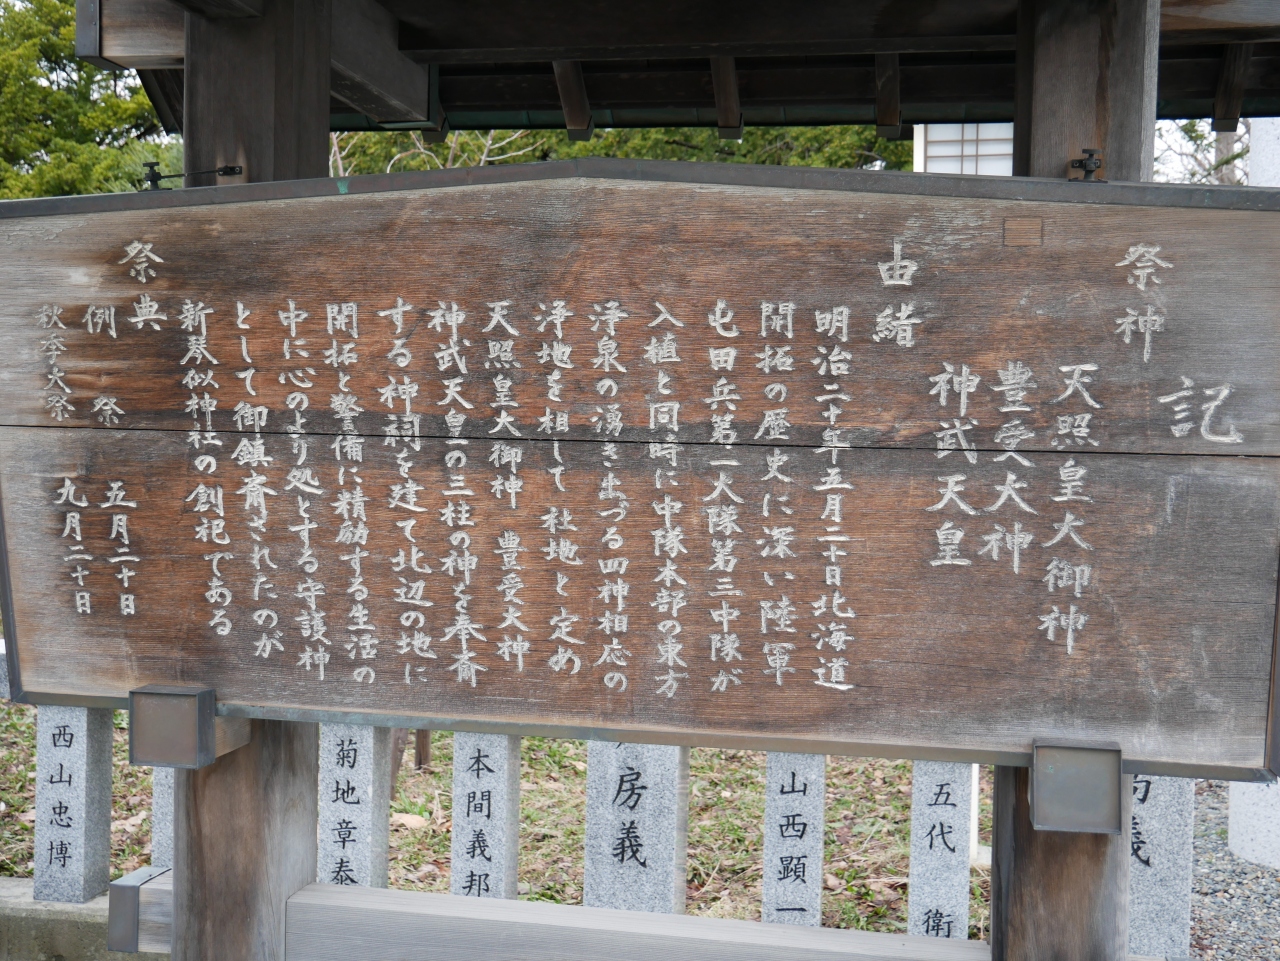 記
祭神
天照皇大御神
豊受大神
神武天皇
由緒
明治二十年五月二十日北海道
開拓の歴史に深い陸軍
屯田兵第一大隊第三中隊が
入植と同時に中隊本部の東方
浄泉の湧き出づる四神相応の
浄地を相して社地と定め
天照皇大御神 豊受大神
神武天皇の三柱の神を奉斎
する神祠を建て北辺の地に
開拓と警備に精励する生活の
中に心のより処とする守護神
として御鎮斎されたのが
新琴似神社の創祀である
祭典
例祭 五月二十日
秋季大祭 九月二十日
義
五代 衛
山西顕一
房義
本間義邦
菊地章泰
西山忠博